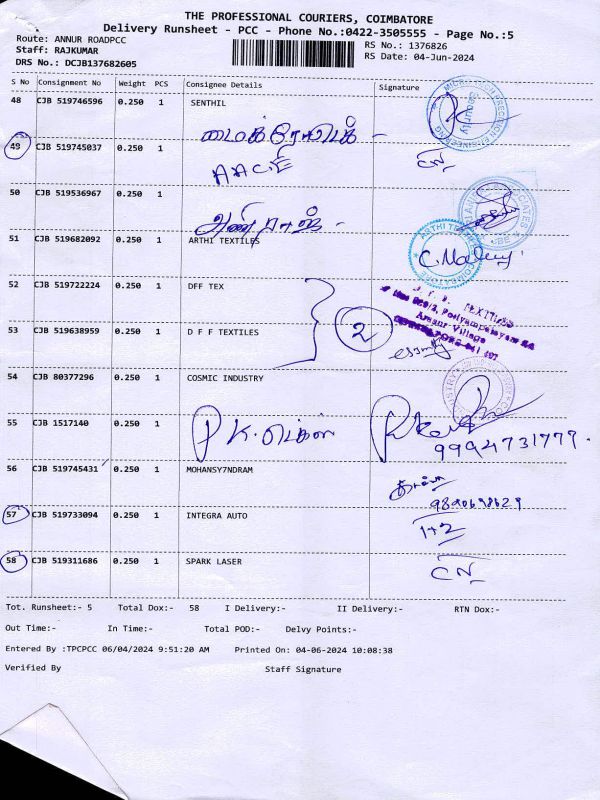 THE PROFESSIONAL COURIERS, COIMBATORE
Delivery Runsheet - PCC - Phone No.:0422-3505555 - Page No.:5
Route: ANNUR ROADPCC
RS No.: 1376826
Staff: RAJKUMAR
RS Date: 04-Jun-2024
DRS No.: DCJB137682605
S No Consignment No Weight PCS Consignee Details Signature
48 CJB 519746596 0.250 1 SENTHIL
49 CJB 519745037 0.250 1
AACE
CN
50 CJB 519536967 0.250 1
51 CJB 519682092 0.250 1 ARTHI TEXTILES
ARTHI TEXTILES
COIMBATORE
52 CJB 519722224 0.250 1 DFF TEX
2
Annur Village
53 CJB 519638959 0.250 1 D F F TEXTILES
54 CJB 80377296 0.250 1 COSMIC INDUSTRY
55 CJB 1517140 0.250 1
9994731777.
56 CJB 519745431 0.250 1 MOHANSY7NDRAM
57 CJB 519733094 0.250 1 INTEGRA AUTO
1+2
58 CJB 519311686 0.250 1 SPARK LASER
CN
Tot. Runsheet:- 5 Total Dox:- 58 I Delivery:- II Delivery:- RTN Dox:-
Out Time:- In Time:- Total POD:- Delvy Points:-
Entered By :TPCPCC 06/04/2024 9:51:20 AM Printed On: 04-06-2024 10:08:38
Verified By Staff Signature